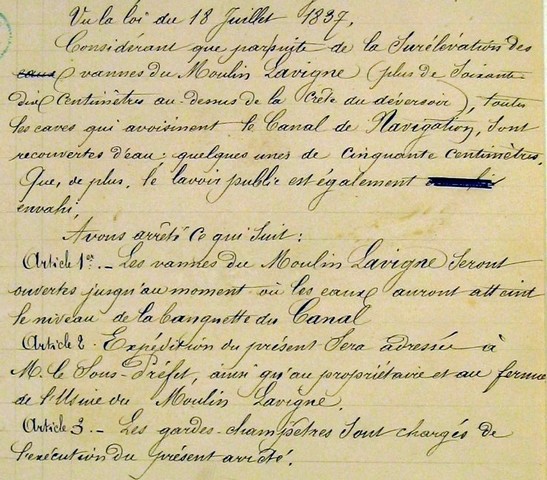 Vu la loi du 18 Juillet 1837,
Considérant que par suite de la Surélévation des
eaux vannes du Moulin Lavigne (plus de Soixante
dix Centimètres au dessus de la Crête du déversoir), toutes
les caves qui avoisinent le Canal de Navigation, Sont
recouvertes d'eau; quelques unes de Cinquante Centimètres,
Que, de plus, le lavoir public est également
envahi,
Avons arrêté Ce qui Suit:
Article 1er. - Les vannes du Moulin Lavigne Seront
ouvertes jusqu'au moment où les eaux auront atteint
le niveau de la banquette du Canal
Article 2. Expédition du présent Sera adressée à
M. le Sous-Préfet, ainsi qu'au propriétaire et au fermier
de l'Usine du Moulin Lavigne.
Article 3. - Les gardes-champêtres Sont chargés de
l'exécution du présent arrêté.